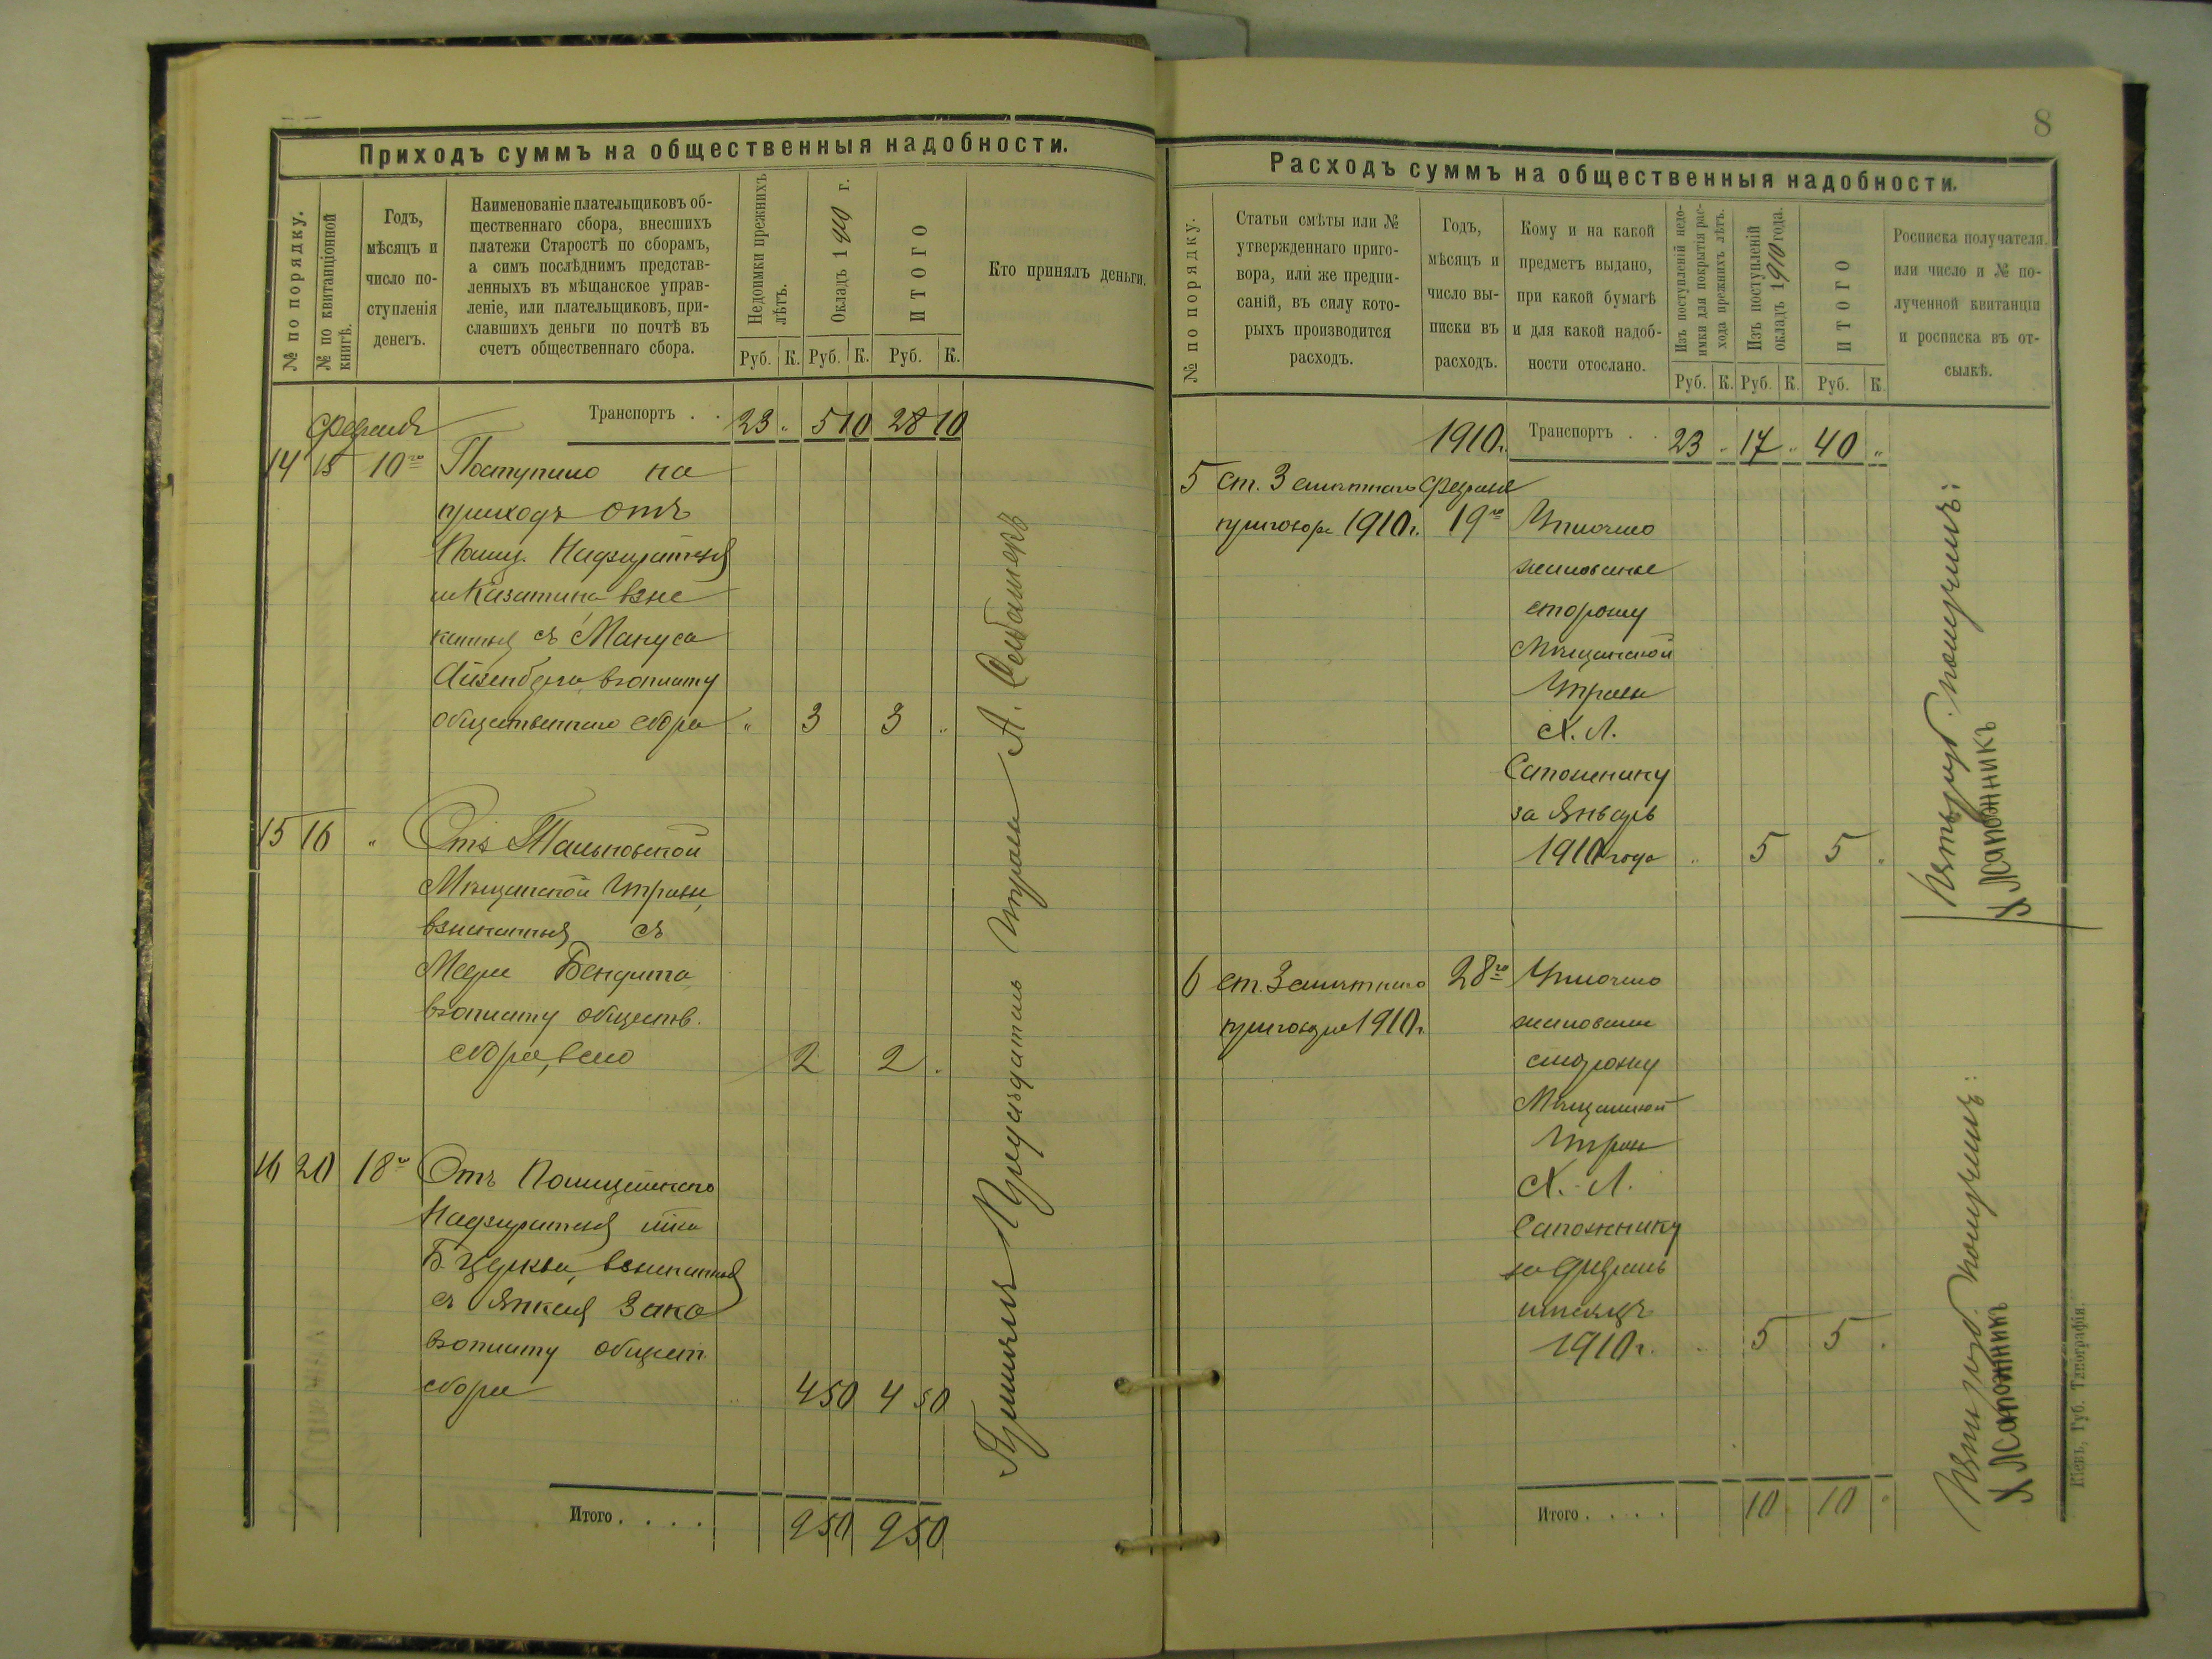 Приходъ суммъ на общественныя надобности.
№ по порядку.
№ по квитанціонной книгѣ.
Годъ,
мѣсяцъ и
число по-
ступленія
денегъ.
Наименованіе плательщиковъ об-
щественнаго сбора, внесшихъ
платежи Старостѣ по сборамъ,
а симъ послѣднимъ представ-
ленныхъ въ мѣщанское управ-
леніе, или плательщиковъ, при-
славшихъ деньги по почтѣ въ
счетъ общественнаго сбора.
Недоимки прежнихъ лѣтъ.
Окладъ 1910 г.
ИТОГО
Кто принялъ деньги.
Руб. К. Руб. К. Руб. К.
Транспортъ . . 23 „ 5 10 28 10
Февраля
14 15 10го Поступило на
приходъ отъ
Полиц. Надзирателя
м Казатина взыс
канныя съ Мануса
Айзенберга вуплату
общественнаго сбора „ 3 3 „
15 16 „ Отъ Тальновской
Мѣщанской Управы,
взысканныя съ
Меера Бендита
вуплату обществ.
сбора, всего 2 2 „
16 20 18го Отъ Полицейскаго
Надзирателя
Б. Церкви, взысканныя
съ Янкеля Зака
вуплату общест.
сбора 4 50 4 50
Итого . . . . 9 50 9 50
Принялъ Предсѣдатель Управы А.
8
Расходъ суммъ на общественныя надобности.
№ по порядку.
Статьи смѣты или №
утвержденнаго приго-
вора, или же предпи-
саній, въ силу кото-
рыхъ производится
расходъ.
Годъ,
мѣсяцъ и
число вы-
писки въ
расходъ.
Кому и на какой
предметъ выдано,
при какой бумагѣ
и для какой надоб-
ности отослано.
Изъ поступленій недо-
имки для покрытія рас-
хода прежнихъ лѣтъ.
Изъ поступленій
окладъ 1910 года.
ИТОГО
Росписка получателя,
или число и № по-
лученной квитанціи
и росписка въ от-
сылкѣ.
Руб. К. Руб. К. Руб. К.
1910г. Транспортъ . . 23 „ 17 „ 40 „
5 ст. 3 смѣтнаго Февраля
приговора 1910г. 19го Уплочено
жалованье
сторожу
Мѣщанской
Управы
Х. Л.
Сапожнику
за Январь
1910 года „ 5 5 „
Пять руб. получилъ:
Х Л Сапожникъ
6 ст. 3 смѣтнаго 28го Уплочено
приговора 1910г. жалованье
сторожу
Мѣщанской
Управы
Х. Л.
Сапожнику
за Февраль
мѣсяцъ
1910г. „ 5 5 „
Пять руб. получилъ:
Х Л Сапожникъ
Итого . . . . 10 10 „
Кіевъ, Губ. Типографія.